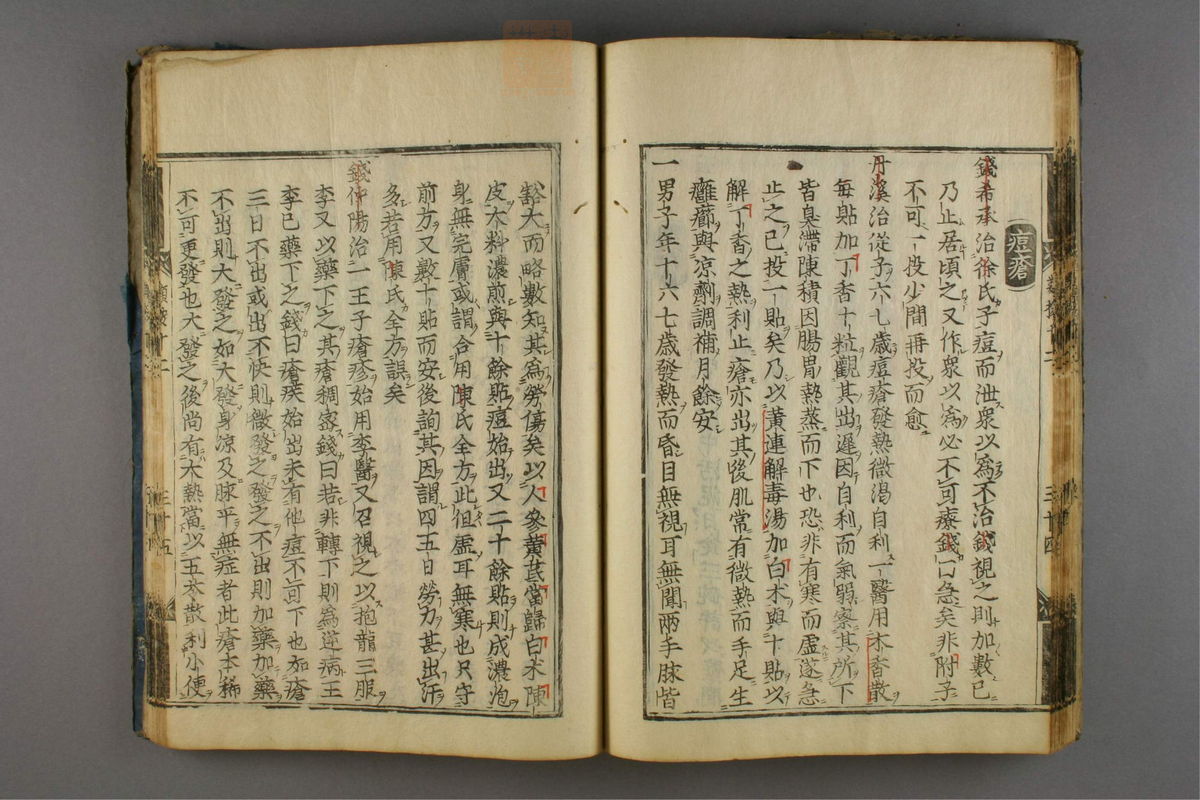 痘瘡
錢希承治徐氏子痘而泄衆以爲不治錢視之則加數已
乃止居頃之又作衆以爲必不可療錢曰急矣非附子
不可一投少間再投而愈
丹溪治從子六七歲痘瘡發熱微渴自利一醫用木香散
每貼加丁香十粒觀其出遲因自利而氣弱察其所下
皆臭滯陳積因腸胃熱蒸而下也恐非有寒而虛遂急
止之已投一貼矣乃以黃連解毒湯加白朮與十貼以
解丁香之熱利止瘡亦出其後肌常有微熱而手足生
癰癤與凉劑調補月餘安
一男子年十六七歲發熱而昏目無視耳無聞兩手脉皆
三十四
豁大而略數知其爲勞傷矣以人參黃芪當歸白朮陳
皮大料濃煎與十餘貼痘始出又二十餘貼則成濃泡
身無完膚或謂合用陳氏全方此但虛耳無寒也只守
前方又數十貼而安後詢其因謂四五日勞力甚出汗
多若用陳氏全方誤矣
錢仲陽治一王子瘡疹始用李醫又召視之以抱龍三服
李又以藥下之其瘡稠密錢曰若非轉下則爲逆病王
李已藥下之錢曰瘡疾始出未有他痘不可下也如瘡
三日不出或出不快則微發之發之不出則加藥加藥
不出則大發之如大發身凉及脉平無症者此瘡本稀
不可更發也大發之後尚有大熱當以五苓散利小便
類按十二
三十五